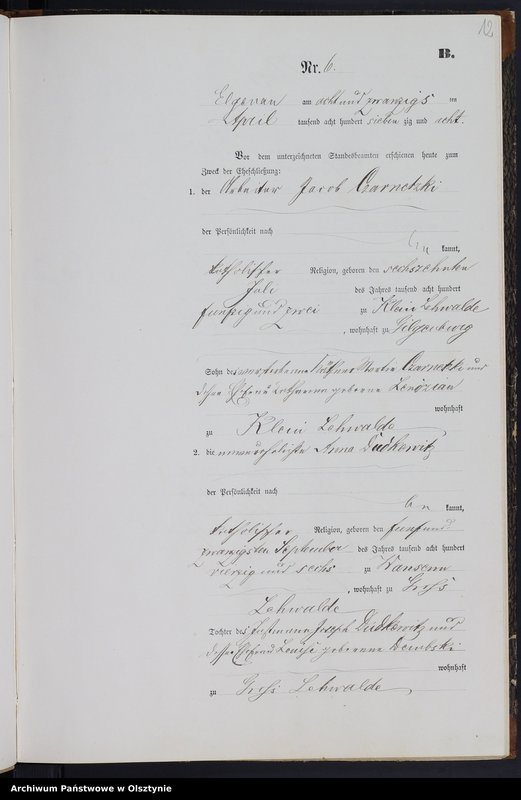 12
B.
Nr. 6.
Elgenau am acht und zwanzigsten
April tausend acht hundert sieben zig und acht.
Vor dem unterzeichneten Standesbeamten erschienen heute zum
Zweck der Eheschließung:
1. der Arbeiter Jacob Czarnetzki
der Persönlichkeit nach
kannt,
katholischer Religion, geboren den sechszehnten
Juli des Jahres tausend acht hundert
fünfzig und zwei zu Klein Lehwalde
, wohnhaft zu Gilgenburg
Sohn des verstorbenen Martin Czarnetzki und
dessen Ehefrau Catharina geborene
wohnhaft
zu Klein Lehwalde
2. die unverehelichte Anna Dudkowitz
der Persönlichkeit nach
kannt,
katholischer Religion, geboren den fünf und
zwanzigsten September des Jahres tausend acht hundert
vierzig und sechs zu Wansenn
, wohnhaft zu Groß
Lehwalde
Tochter des Losmann Joseph Dudkowitz und
dessen Ehefrau Louise geborene
wohnhaft
zu Groß Lehwalde
Archiwum Państwowe w Olsztynie